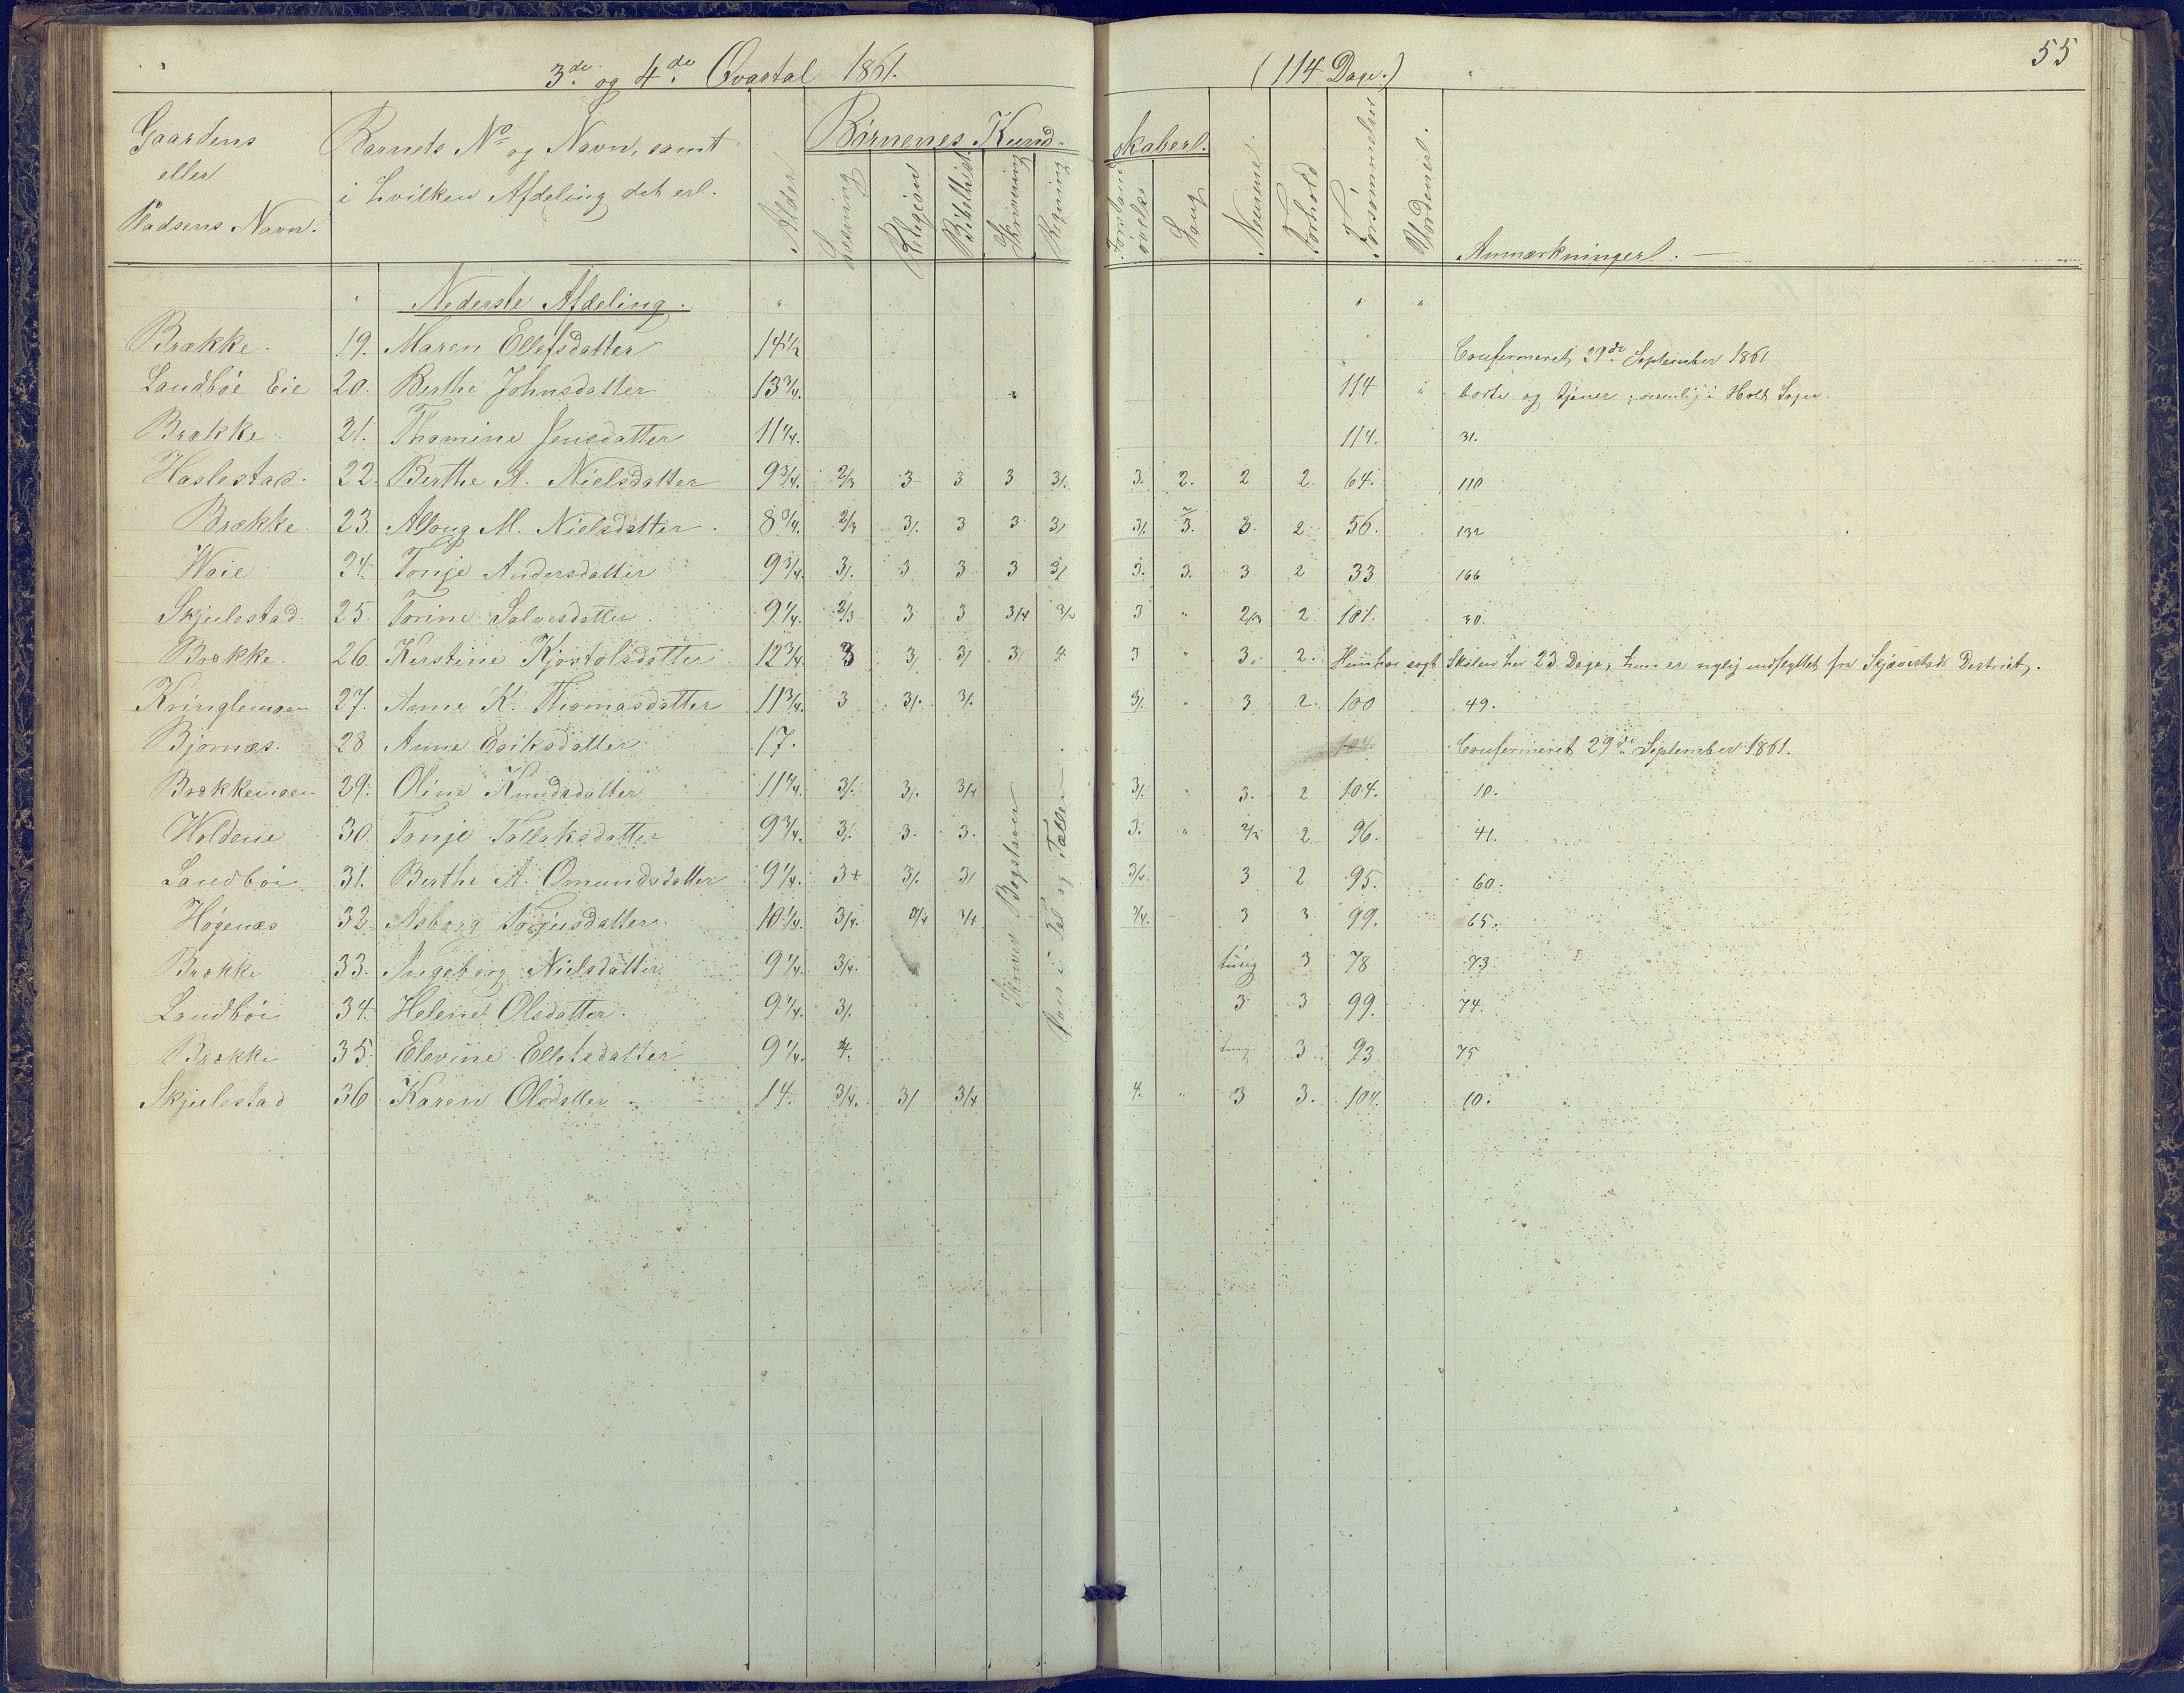 3de og 4de Qvartal 1861. (114 Dage.) 55
Gaardens eller Pladsens Navn. Barnets No og Navn, samt i hvilken Afdeling det er. Alder Børnenes Kundskaber. Læsning Religion Bibelhist. Skrivning Regning Forstandsøvelse Sang Nemme Forhold Forsømmelser Anmærkninger.
Nederste Afdeling.
Brække. 19. Maren Ellefsdatter 14 1/2 Confirmeret 29de September 1861
Landbøe Eie 20. Berthe Johnsdatter 13 3/4. 114 borte og tjener nemlig i Holt Sogn.
Brække. 21. Thomine Jensdatter 11 1/4. 114. 31.
Haslestad. 22. Berthe A. Nielsdatter 9 3/4. 2/3 3 3 3 3/. 3. 2. 2 2. 64. 110
Brække. 23. Aslaug M. Nielsdatter. 8 3/4. 2/3 3/. 3 3 3/ 3/. 3. 3. 2 56. 132
Waie 24. Tonje Andersdatter 9 3/4. 3/. 3 3 3 3/ 3. 3. 3 2 33 166
Skjulestad. 25. Torine Salvesdatter. 9 1/4. 2/3 3 3 3/4 3/4 3 " 2/3 2. 101. 30.
Brække. 26 Kerstine Kjortolsdatter 12 3/4. 3 3/ 3/ 3/ 4 3 " 3. 2. Hun har søgt Skolen her 23 Dage, hun er nylig indflyttet fra Skjæverstads District.
Kringlemoen 27. Anne K. Thomasdatter 11 3/4. 3 3/. 3/. 3/. " 3 2. 100 49.
Bjornæs. 28 Anne Eriksdatter. 17. 104. Confirmeret 29de September 1861.
Brækkemoen 29. Oline Knudsdatter 11 1/4. 3/. 3/. 3/4 3/. " 3. 2 104. 10.
Woldene 30. Tonje Tallaksdatter 9 3/4. 3/. 3. 3. 3. " 2/3 2 96. 41.
Landbøi 31. Berthe A. Omundsdatter 9 1/4. 3+ 3/. 3/ 3/4. 3 2 95. 60.
Høgenæs 32. Asborg Torjusdatter 10 1/4. 3/4. 3/4 3/4 3/4. 3 3. 99. 65.
Brække 33. Ingeborg Nielsdatter 9 1/4. 3/4. tung 3 78 73
Landbøi 34. Helene Olsdatter. 9 1/4. 3/. 3 3 99. 74.
Brække 35. Elevine Ellefsdatter 9 1/4. 4. tung 3 93 75
Skjulestad 36 Karen Olsdatter. 14. 3/4. 3/ 3/4 4. " 3 3. 104. 10.
Skriver Bogstaver
Øves i Tal og Tæller